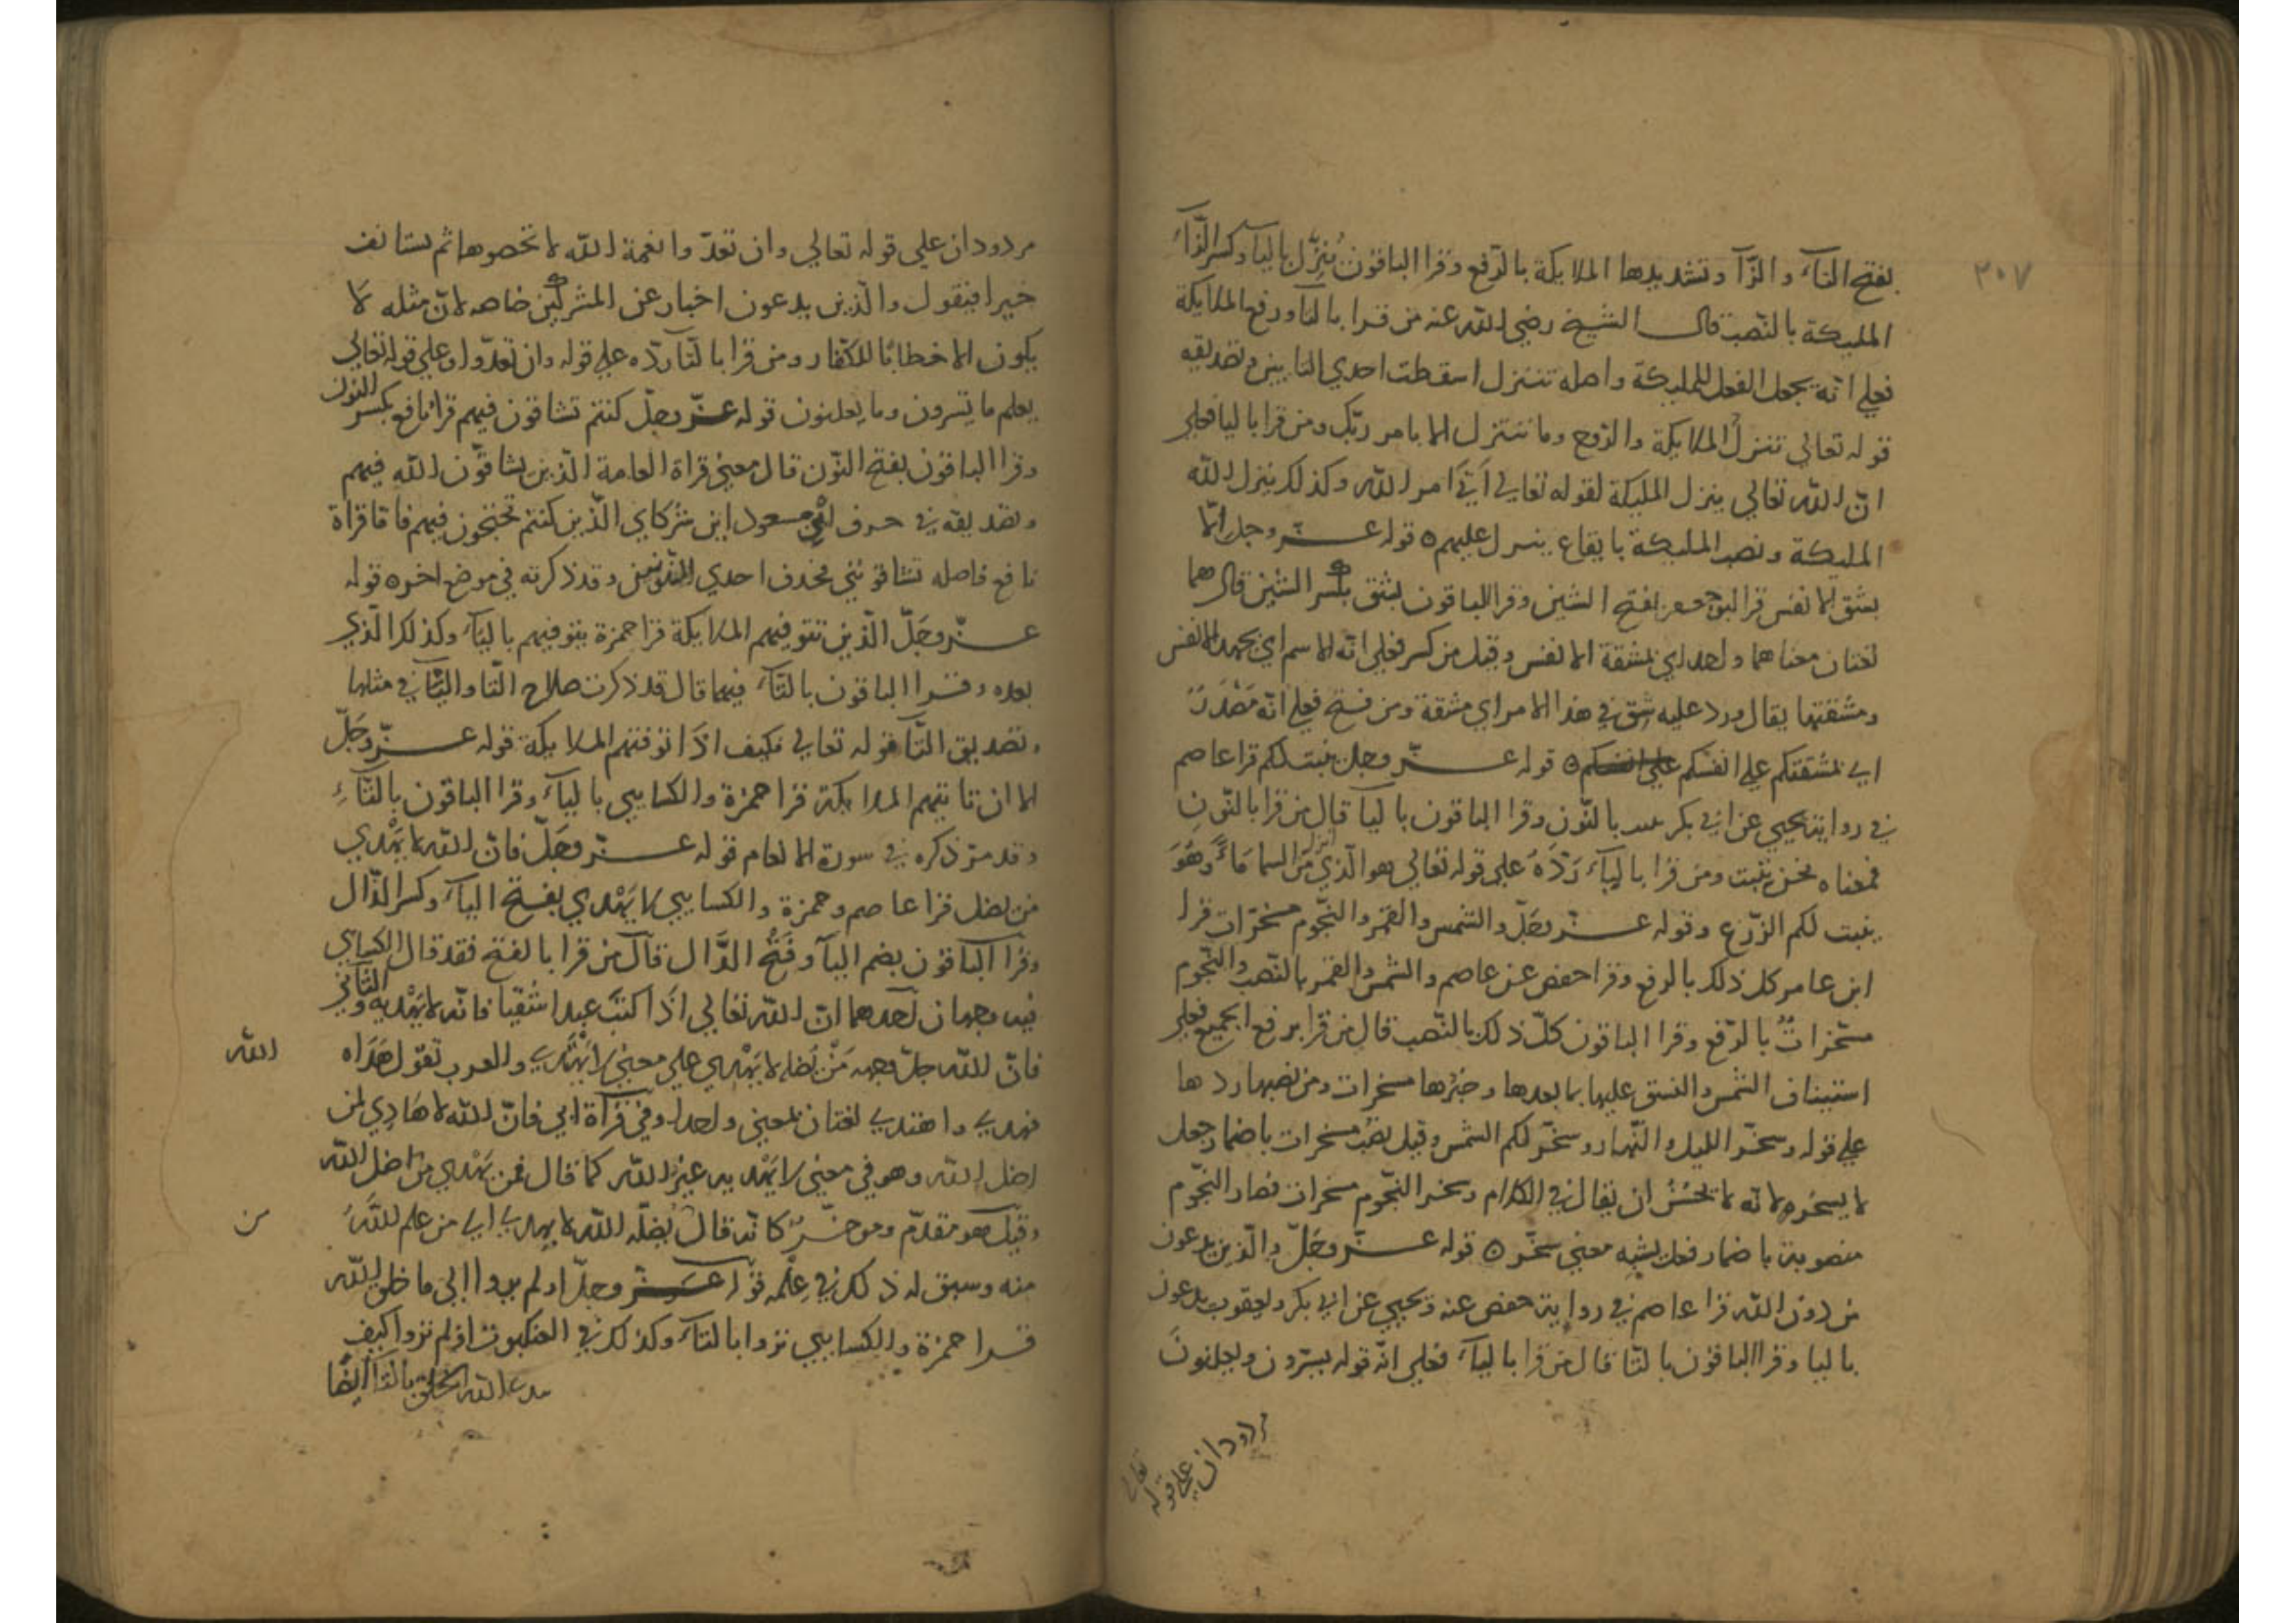 ٣٠٧
بفتح التاء والزآ وتشديدها الملايكة بالرّفع وقرا الباقون يُنزّل باليآ وكسر الزّاء
المليكة بالنّصب قال الشيخ رضي الله عنه من قرا بالتآ ورفع الملايكة
فعلي انّه يجعل الفعل للمليكة واصله تتنزل اسقطت احدي التايين وتصديقه
قوله تعالي تنزلُ الملايكة والرّوح وما نتنزل الا بامر ربّك ومن قرا باليا فعلي
انّ الله تعالي ينزل المليكة لقوله تعالي اتيَ امر الله وكذلك ينزل الله
المليكة ونصب المليكة بايقاع ينزل عليهم ٥ قوله عزّ وجل الّا
بشق الانفس قرا ابو جعفر بفتح الشين وقرا الباقون بشق بكسر الشين قال هما
لغتان معناهما واحد اي بمشقة الانفس وقيل من كسر فعلي انّه الاسم اي بجهد الانفس
ومشقتها يقال ورد عليه شق في هذا الامر اي مشقة ومن فتح فعلي انّه مَصْدَرٌ
اي بمشقتكم علي انفسكم ٥ قوله عزّ وجل ينبت لكم قرا عاصم
في رواية يحيي عن ابي بكر بالنّون وقرا الباقون باليآ قال من قرا بالنّون
فمعناه نحن ننبت ومن قرا باليآء رَدَّهُ علي قوله تعالي هو الّذي انزل من السما مَاءً وَهُوَ
ينبت لكم الزّرع وقوله عزّ وجَلّ والشّمس والقمر والنجّوم مسخّرات قرا
ابن عامر كل ذلك بالرفع وقرا حفص عن عاصم والشّمس والقمر بالنّصب والنّجوم
مسّخراتٌ بالرّفع وقرا الباقون كلّ ذلك بالنّصب قال من قرا برفع الجميع فعلي
استيناف الشّمس والنسق عليها بما بعدها وخبرُها مسخرات ومن نصبها ردها
علي قوله وسخّر الليل والنّهار وسخّر لكم الشمس وقيل نصب مسخرات باضمار جعل
لا بسخره لانّه لا يَحْسُنُ ان يقال في الكلام وسخر النّجوم مسخرات فصار النّجوم
منصوبة باضمار فعل يشبه معني سخّر ٥ قوله عزّ وجَلّ والّذين يدعون
من دون الله قرا عاصم في رواية حفص عنه ويحيي عن ابي بكر ويعقوب يدعون
باليا وقرا الباقون بالتا قال من قرا باليآء فعلي انّ قوله يسرّون ويعلنونَ
مردودان علي قوله تعالي
مردودان علي قوله تعالي وان تعدّوا نعمة الله لا تحصوها ثم يستانف
خبرا فيقول والّذين يدعون اخبار عن المشركين خاصه لانّ مثله لا
يكون الا خطابًا للكفّار ومن قرا بالتّآ ردّه علي قوله وان تعدّوا وعلي قوله تعالي
يعلم ما تسرون وما يعلنون قوله عزّ وجلّ كنتم تشاقون فيهم قرا نافع بكسر النون
وقرا الباقون بفتح النّون قال معني قراة العامة الّذين يشاقّون الله فيهم
وتصديقه في حرف ابن مسعود اين شركاي الّذين كنتم تحتجون فيهم فاما قراة
نافع فاصله تشاقونني فحذف احدي النّونين وقد ذكرته في موضع اخر ٥ قوله
عزّ وجَلّ الّذين تتوفيهم الملايكة قرا حمزة يتوفيهم باليآء وكذلك الّذي
بعده وقرا الباقون بالتّآء فيهما قال قد ذكرت صلاح التّا واليآ في مثلها
وتصديق التّآ قوله تعالي فكيف اذا توفتهم الملايكة قوله عزّ وجَلّ
الا ان تاتيهم الملايكة قرا حمزة والكسايي باليآء وقرا الباقون بالتّآءِ
وقد مرّ ذكره في سورة الانعام قوله عزّ وجَلّ فانّ الله لا يَهْدي
من يضل قرا عاصم وحمزة والكسايي لا يَهْدي بفتح اليآء وكسر الدّال
وقرا الباقون بضم اليآ وفتح الدَّال قال من قرا بالفتح فقد قال الكسايي
فيه وجهان احدهما انّ الله تعالي اذا كتبَ عبدا شقيا فانّه لا يَهْديه والثّاني
فانّ الله جلّ وجهه مَنْ يضله لا يَهْدي علي معني لا يَهْتدي والعرب تقول هَدَاه
الله
فهدي واهتدي لغتان بمعني واحد وفي قرآة ابي فانّ الله لا هَادِي لمن
اضل الله وهو في معني لا يَهْديه غير الله كما قال فمن يَهْدي من اضل الله
وقيل هو مقدّم وموخّرٌ كانّه قال يُضلّه الله لا يهدي اي من علم اللهُ
من
منه وسبق له ذلك في عِلْمه قوله عزّ وجلّ اولم يروا الي ما خلق الله
قرا حمزة والكسايي تروا بالتآء وكذلك في العنكبوت اولم تروا كيف
يبدئ الله الخلق بالتا ايضًا